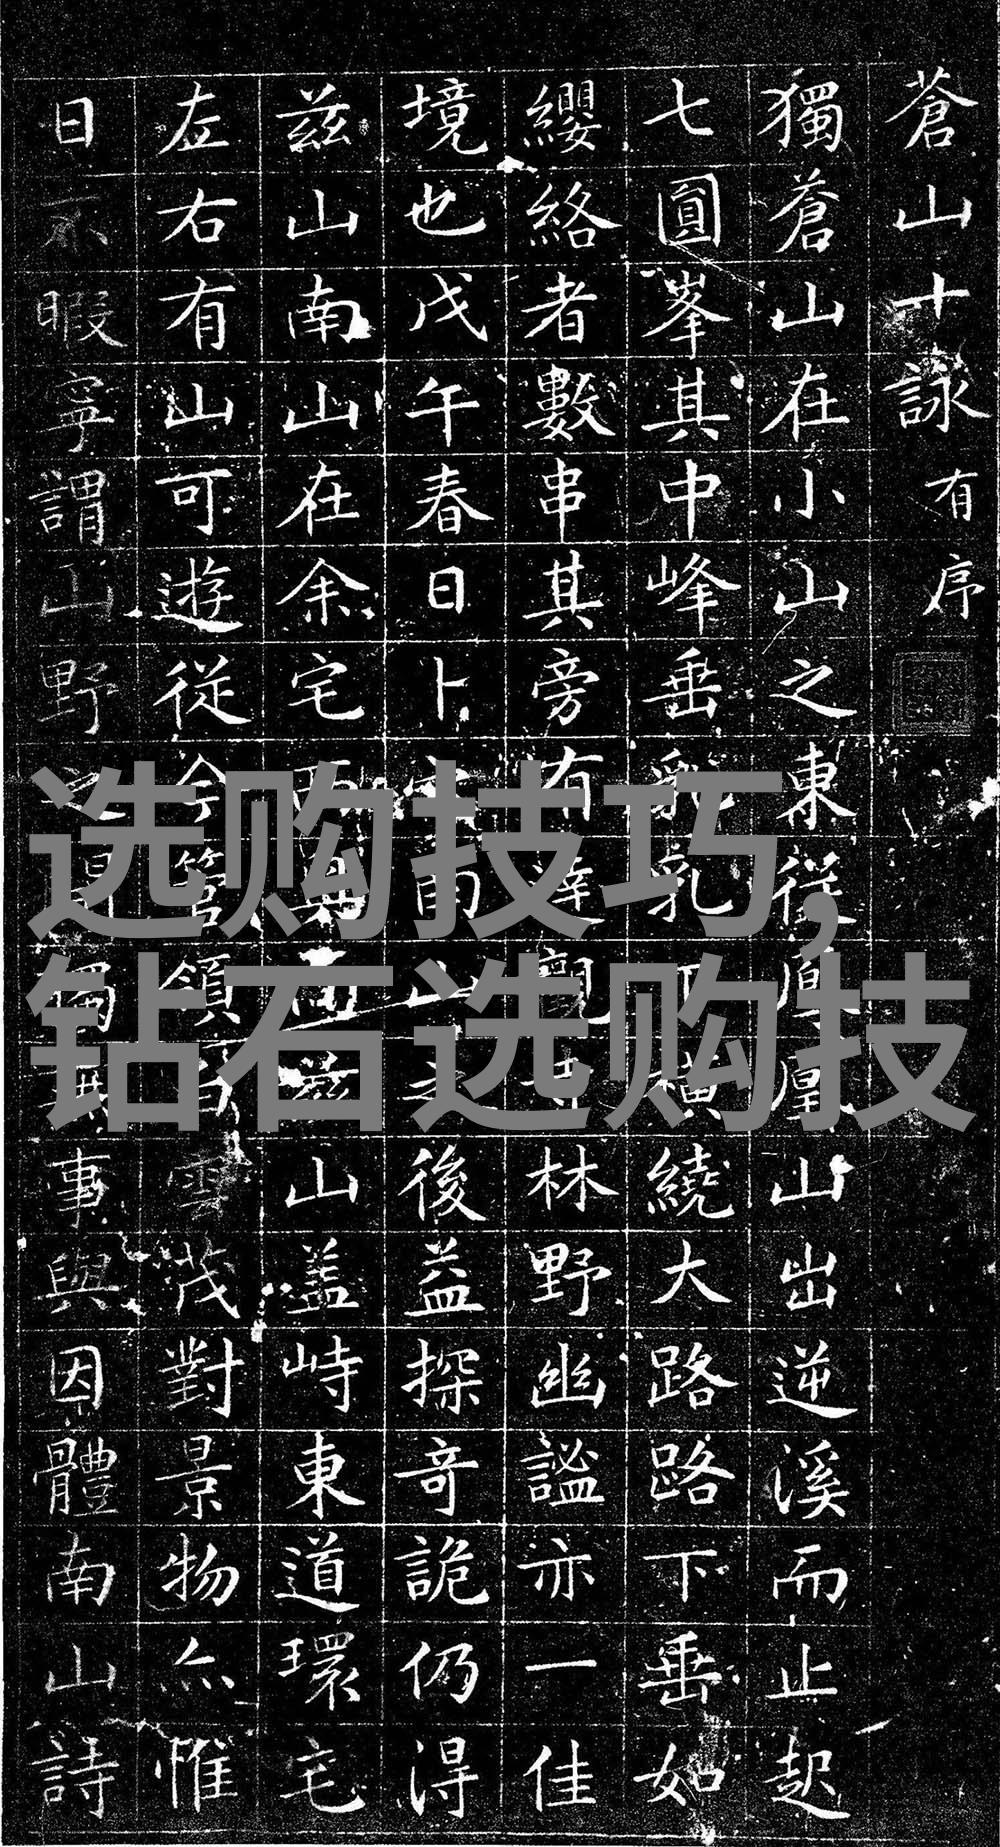 蒼山十詠 有序
獨蒼山在小山之東從鳳凰山出逆溪而止起
七圓峯其中峰垂乳乳下橫繞大路路下垂如
纓絡者數串其旁有達觀寺林野幽謐亦一佳
境也戊午春日卜宅南山之後益探奇詭仍得
茲山南山在余宅西面茲山盖峙東道環宅
左右有山可遊從今管領白雲茂對景物亦惟
日不暇寧謂山野之獨無事與因體南山詩
选购技巧,
钻石选购技